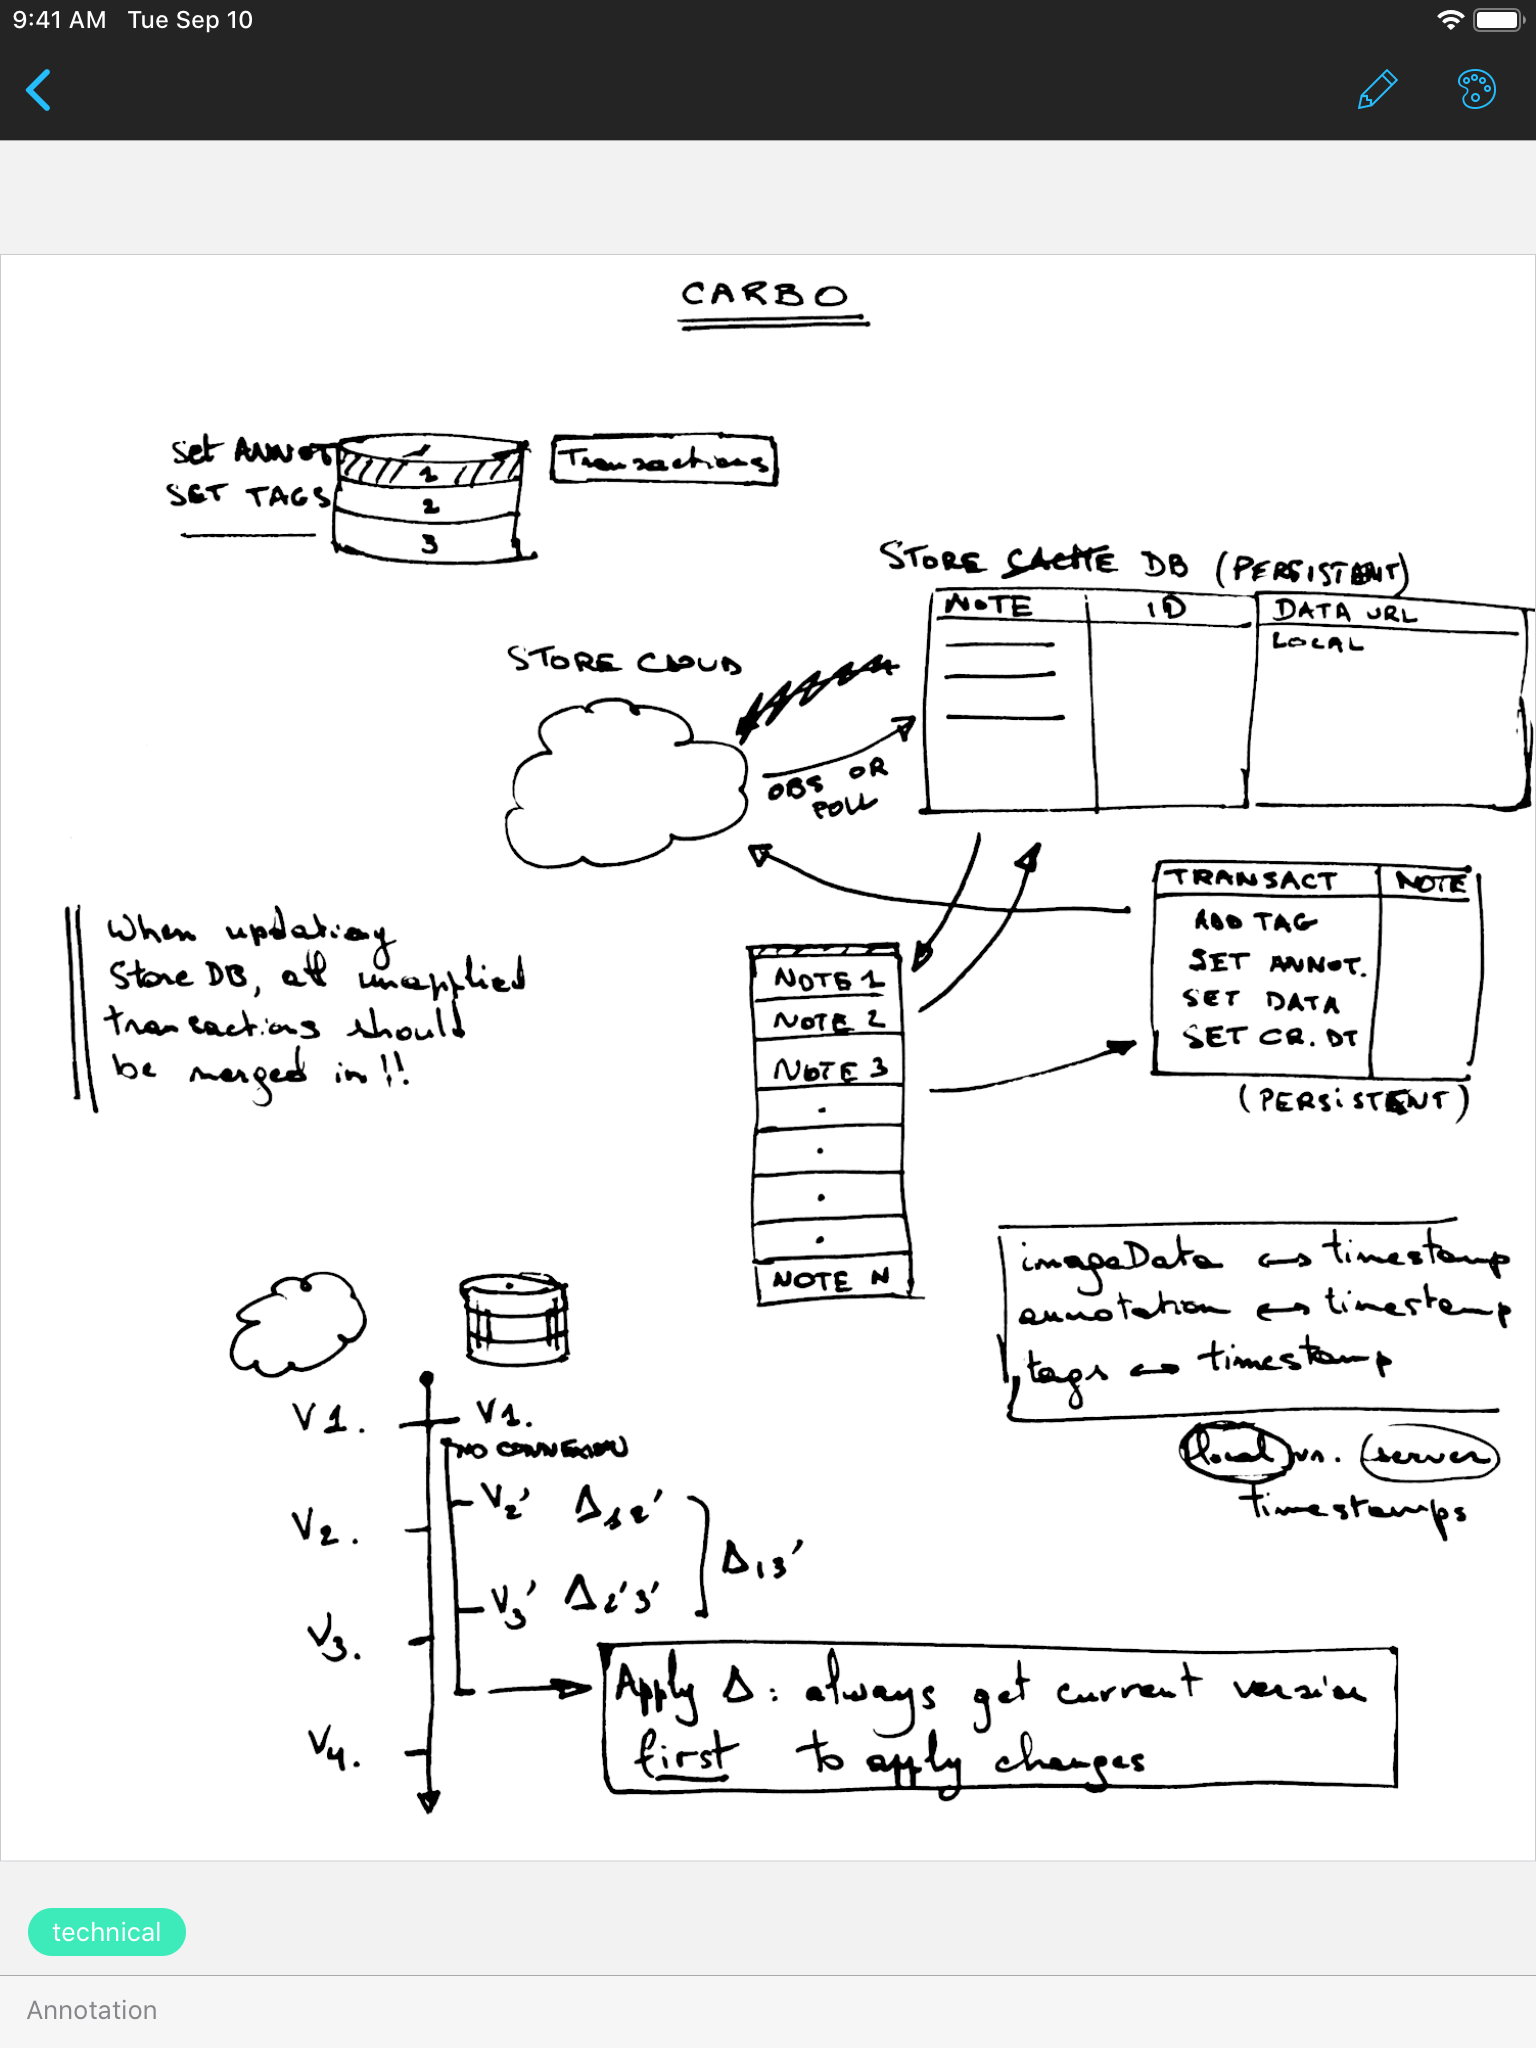 9:41 AM Tue Sep 10
CARBO
Set ANNOT
SET TAGS
1
2
3
Transactions
STORE CACHE DB (PERSISTENT)
NOTE ID DATA URL
LOCAL
STORE CLOUD
OBS OR
POLL
TRANSACT NOTE
ADD TAG
SET ANNOT.
SET DATA
SET CR. DT
(PERSISTENT)
When updating
Store DB, all unapplied
transactions should
be merged in!!
NOTE 1
NOTE 2
NOTE 3
.
.
.
.
NOTE N
imageData ↔ timestamp
annotation ↔ timestamp
tags ↔ timestamp
local vs. server
timestamps
V1. V1.
NO CONNEXION
V2' Δ12'
V2.
Δ13'
V3' Δ2'3'
V3.
Apply Δ: always get current version
first to apply changes
V4.
technical
Annotation